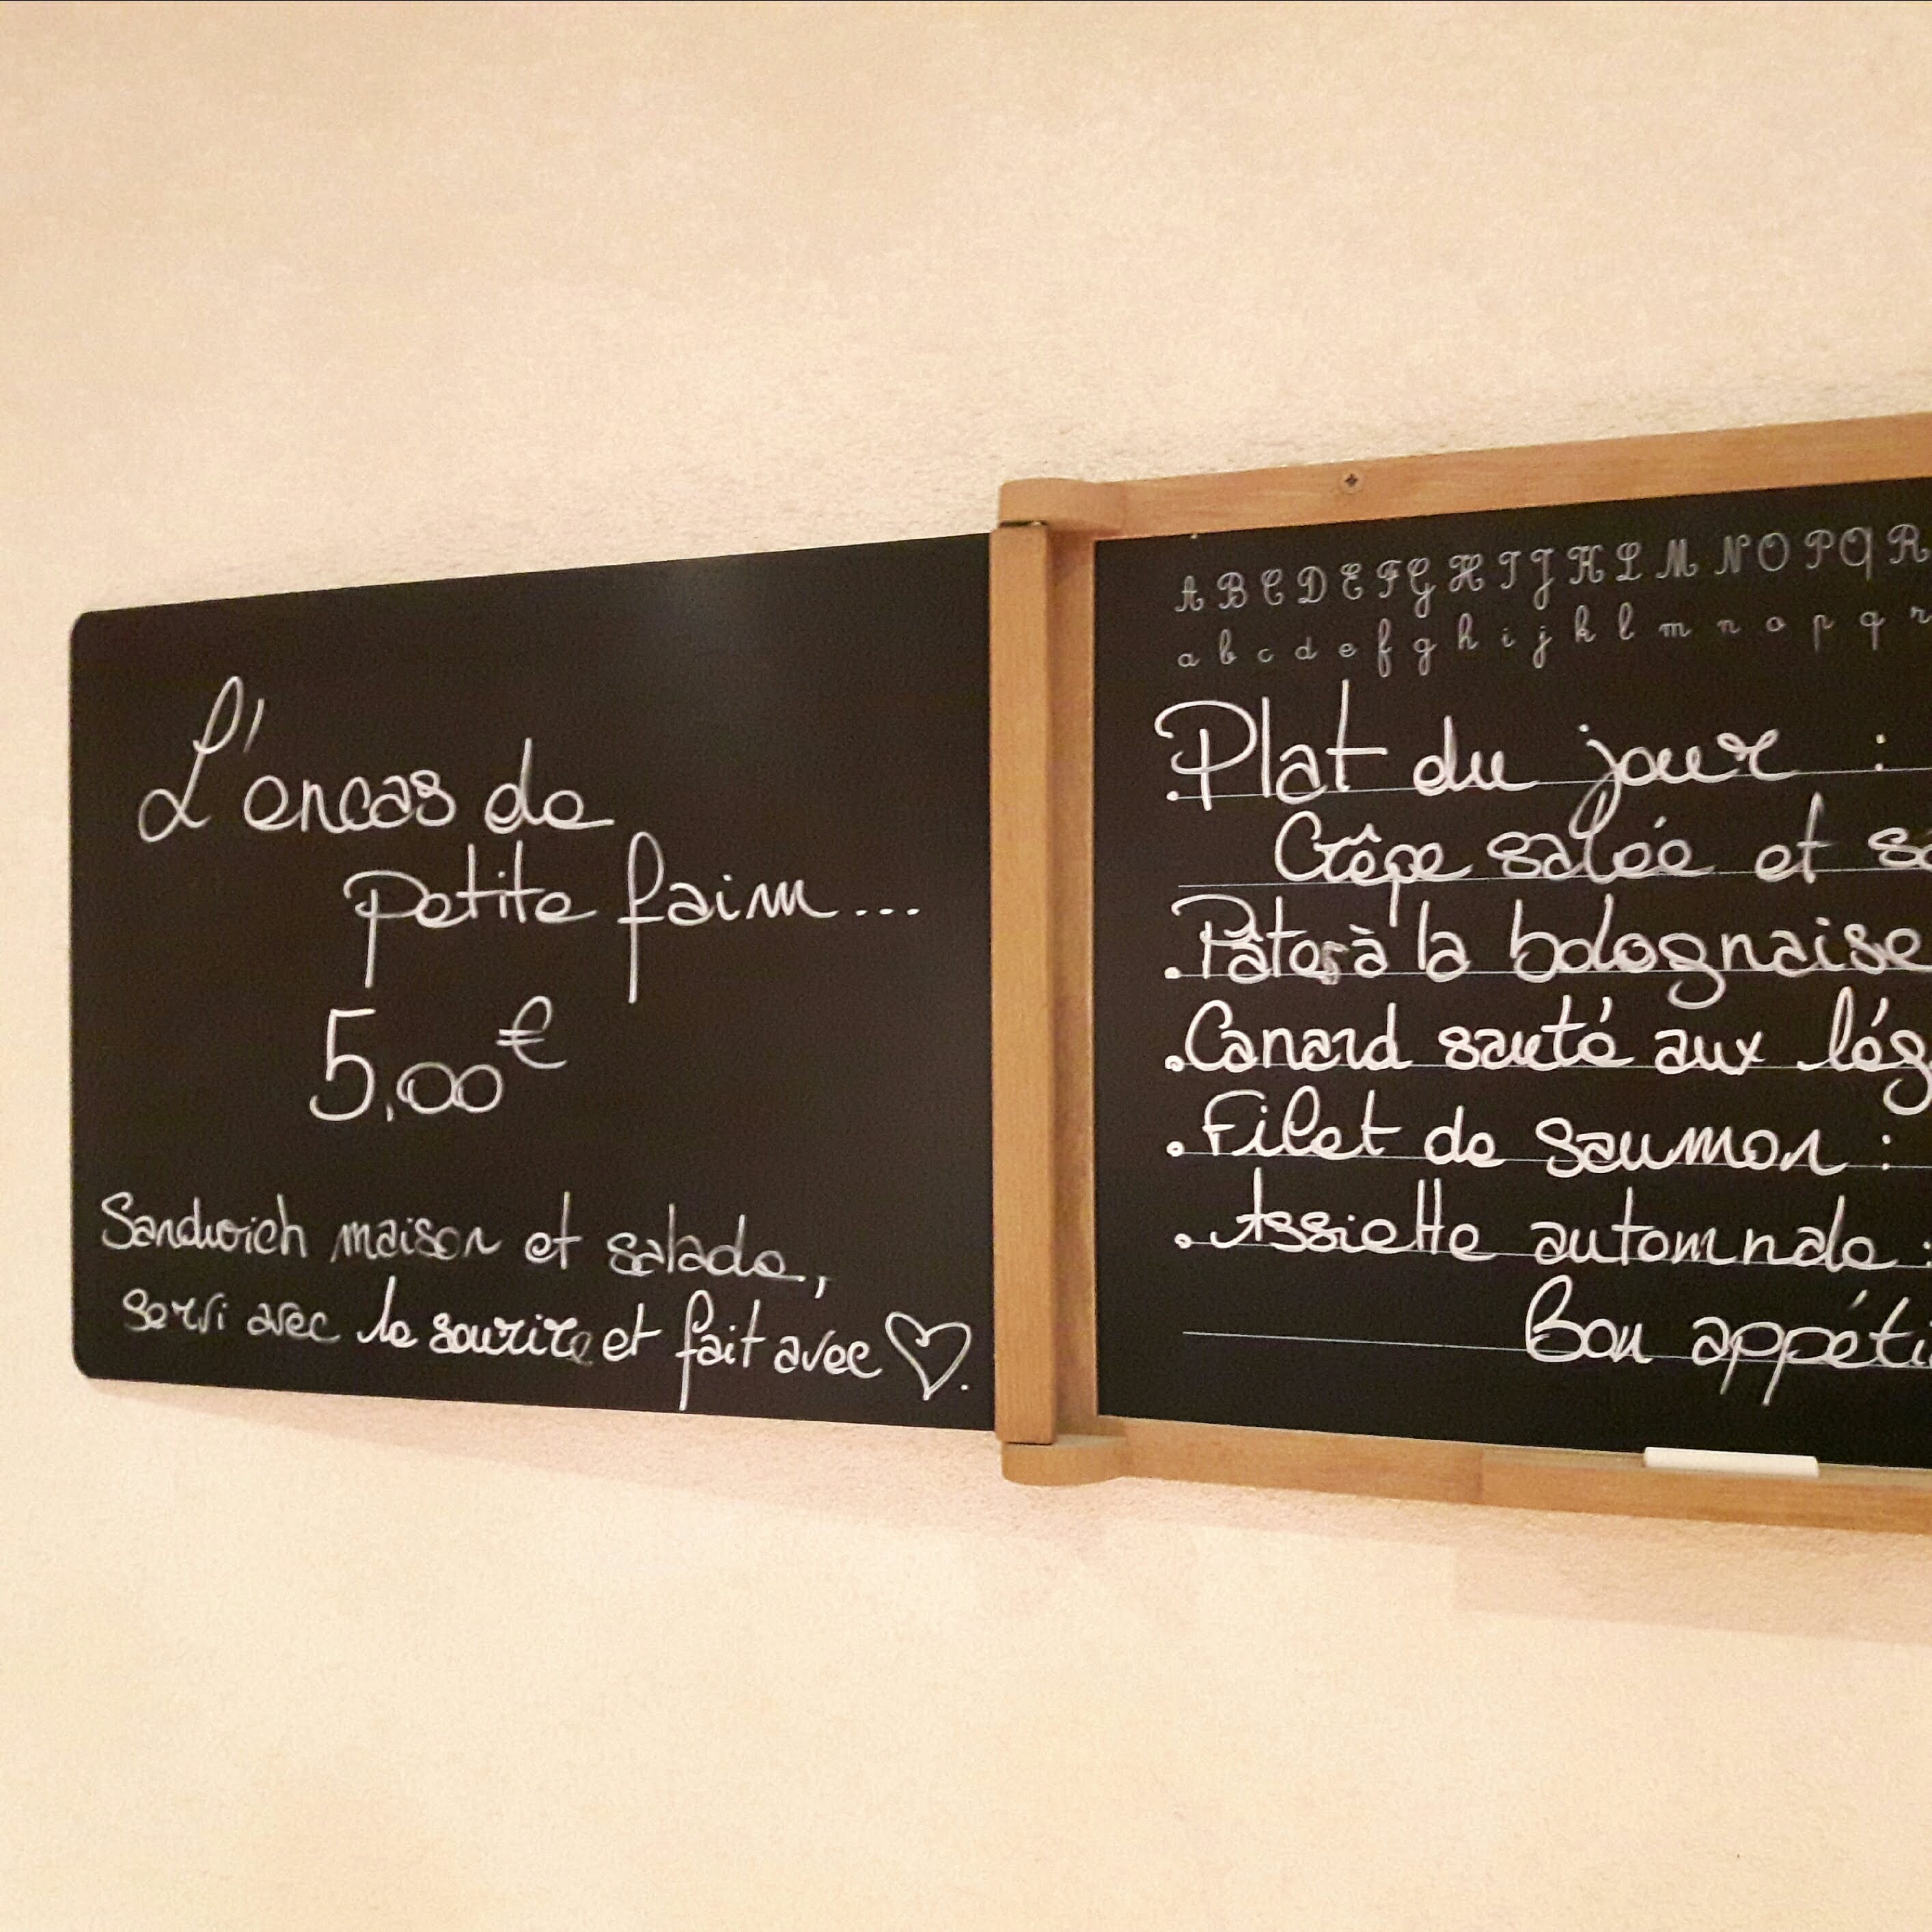 L'encas de
petite faim...
5,00€
Sandwich maison et salade,
servi avec le sourire et fait avec
A B C D E F G H I J K L M N O P Q R
a b c d e f g h i j k l m n o p q r
Plat du jour :
Crêpe salée et
. Pâtes à la bolognaise
. Canard sauté aux
. Filet de saumon :
. Assiette automnale :
Bon